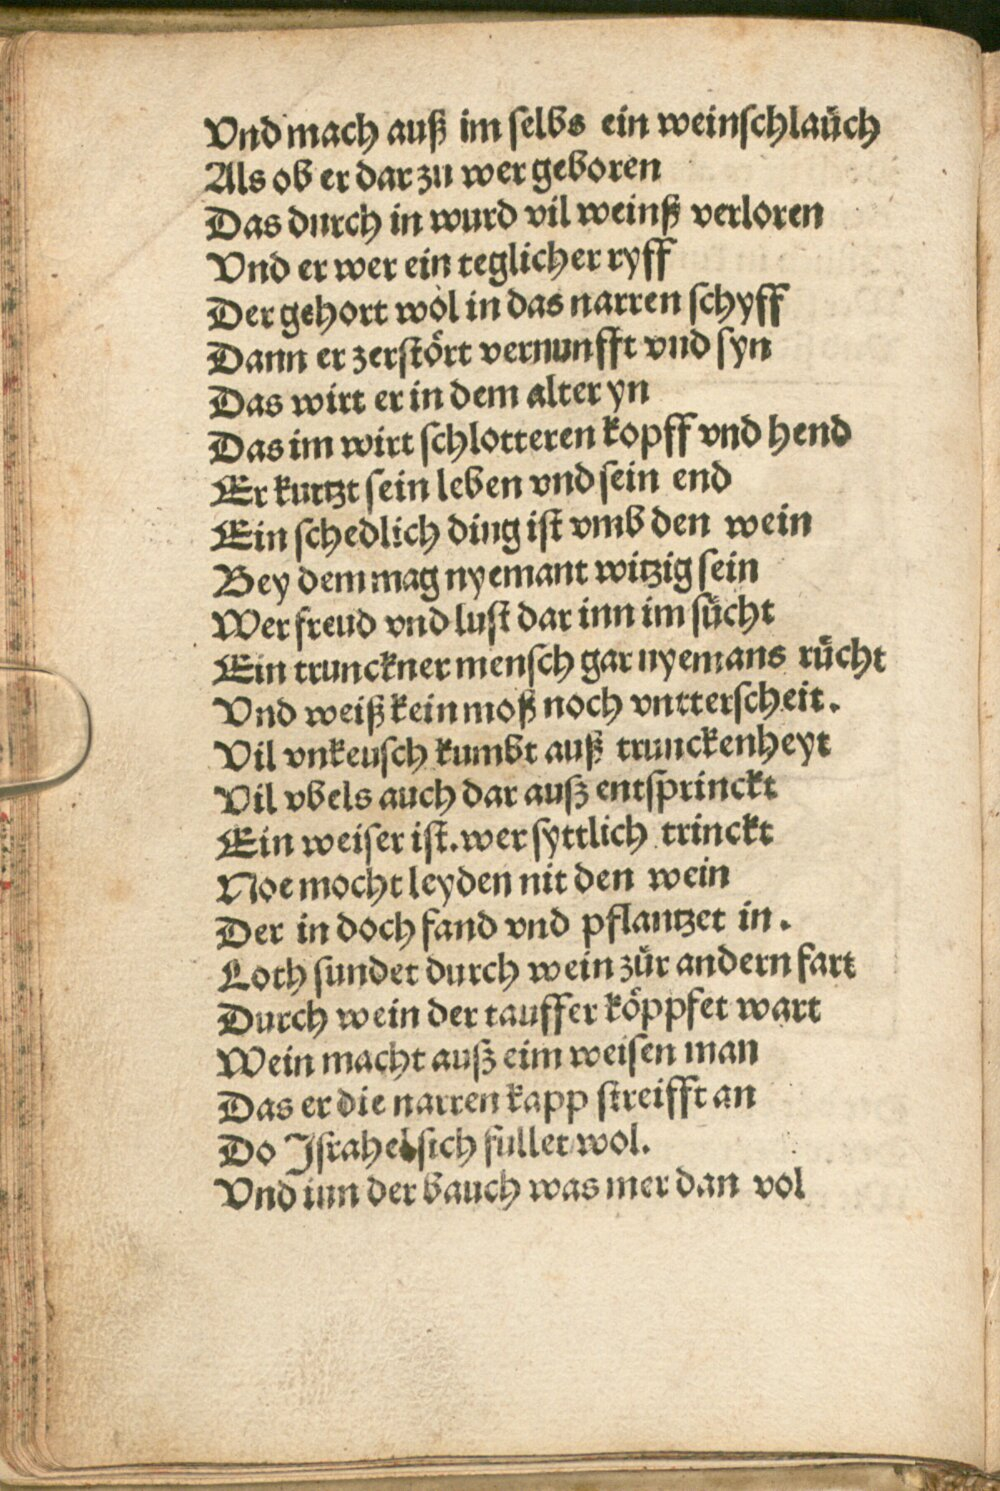 Vnd mach auß im selbs ein weinschlaüch
Als ob er dar zu wer geboren
Das durch in wurd vil weinß verloren
Vnd er wer ein teglicher ryff
Der gehort wol in das narren schyff
Dann er zerstört vernunfft vnd syn
Das wirt er in dem alter yn
Das im wirt schlotteren kopff vnd hend
Er kurtzt sein leben vnd sein end
Ein schedlich ding ist vmb den wein
Bey dem mag nyemant witzig sein
Wer freud vnd lust dar inn im sücht
Ein trunckner mensch gar nyemans rücht
Vnd weiß kein moß noch vntterscheit.
Vil vnkeusch kumbt auß trunckenheyt
Vil vbels auch dar auß entsprinckt
Ein weiser ist. wer syttlich trinckt
Noe mocht leyden nit den wein
Der in doch fand vnd pflantzet in.
Loth sundet durch wein zür andern fart
Durch wein der tauffer köppfet wart
Wein macht auß eim weisen man
Das er die narren kapp streifft an
Do Israhel sich fullet wol.
Vnd iun der bauch was mer dan vol